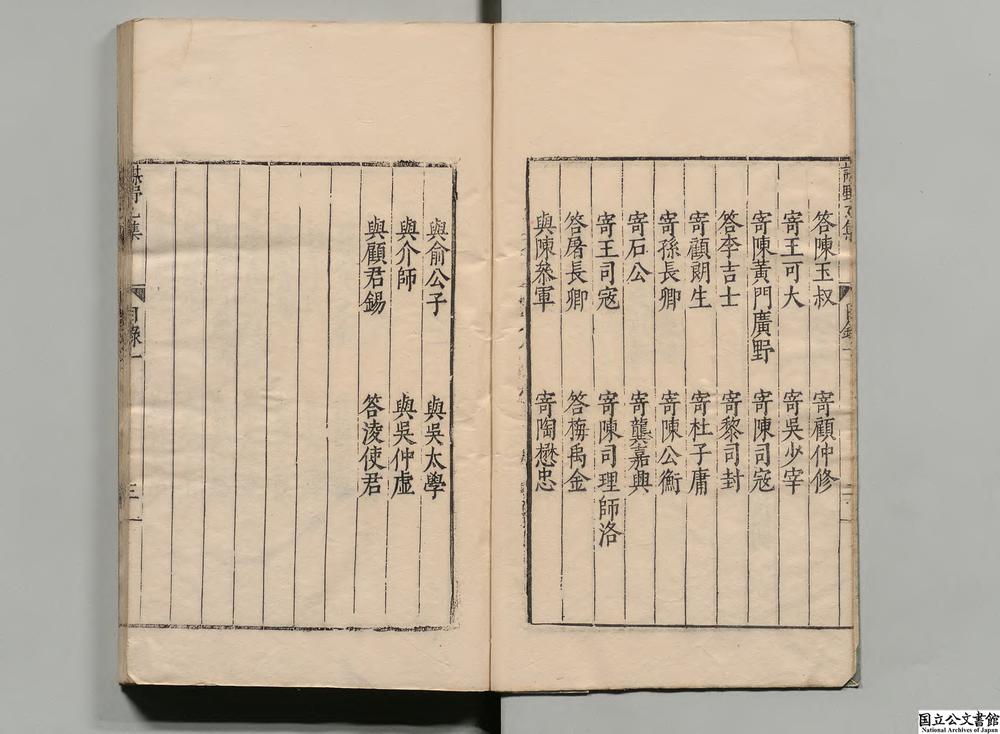 答陳玉叔 寄顧仲修
寄王可大 寄吳少宰
寄陳黃門廣野 寄陳司寇
答李吉士 寄黎司封
寄顧朗生 寄杜子庸
寄孫長卿 寄陳公衡
寄石公 寄龔嘉興
寄王司寇 寄陳司理師洛
答屠長卿 答梅禹金
與陳叅軍 寄陶懋忠
與俞公子 與吳太學
與介師 與吳仲虛
與顧君錫 答淩使君
目錄一
三
国立公文書館
National Archives of Japan